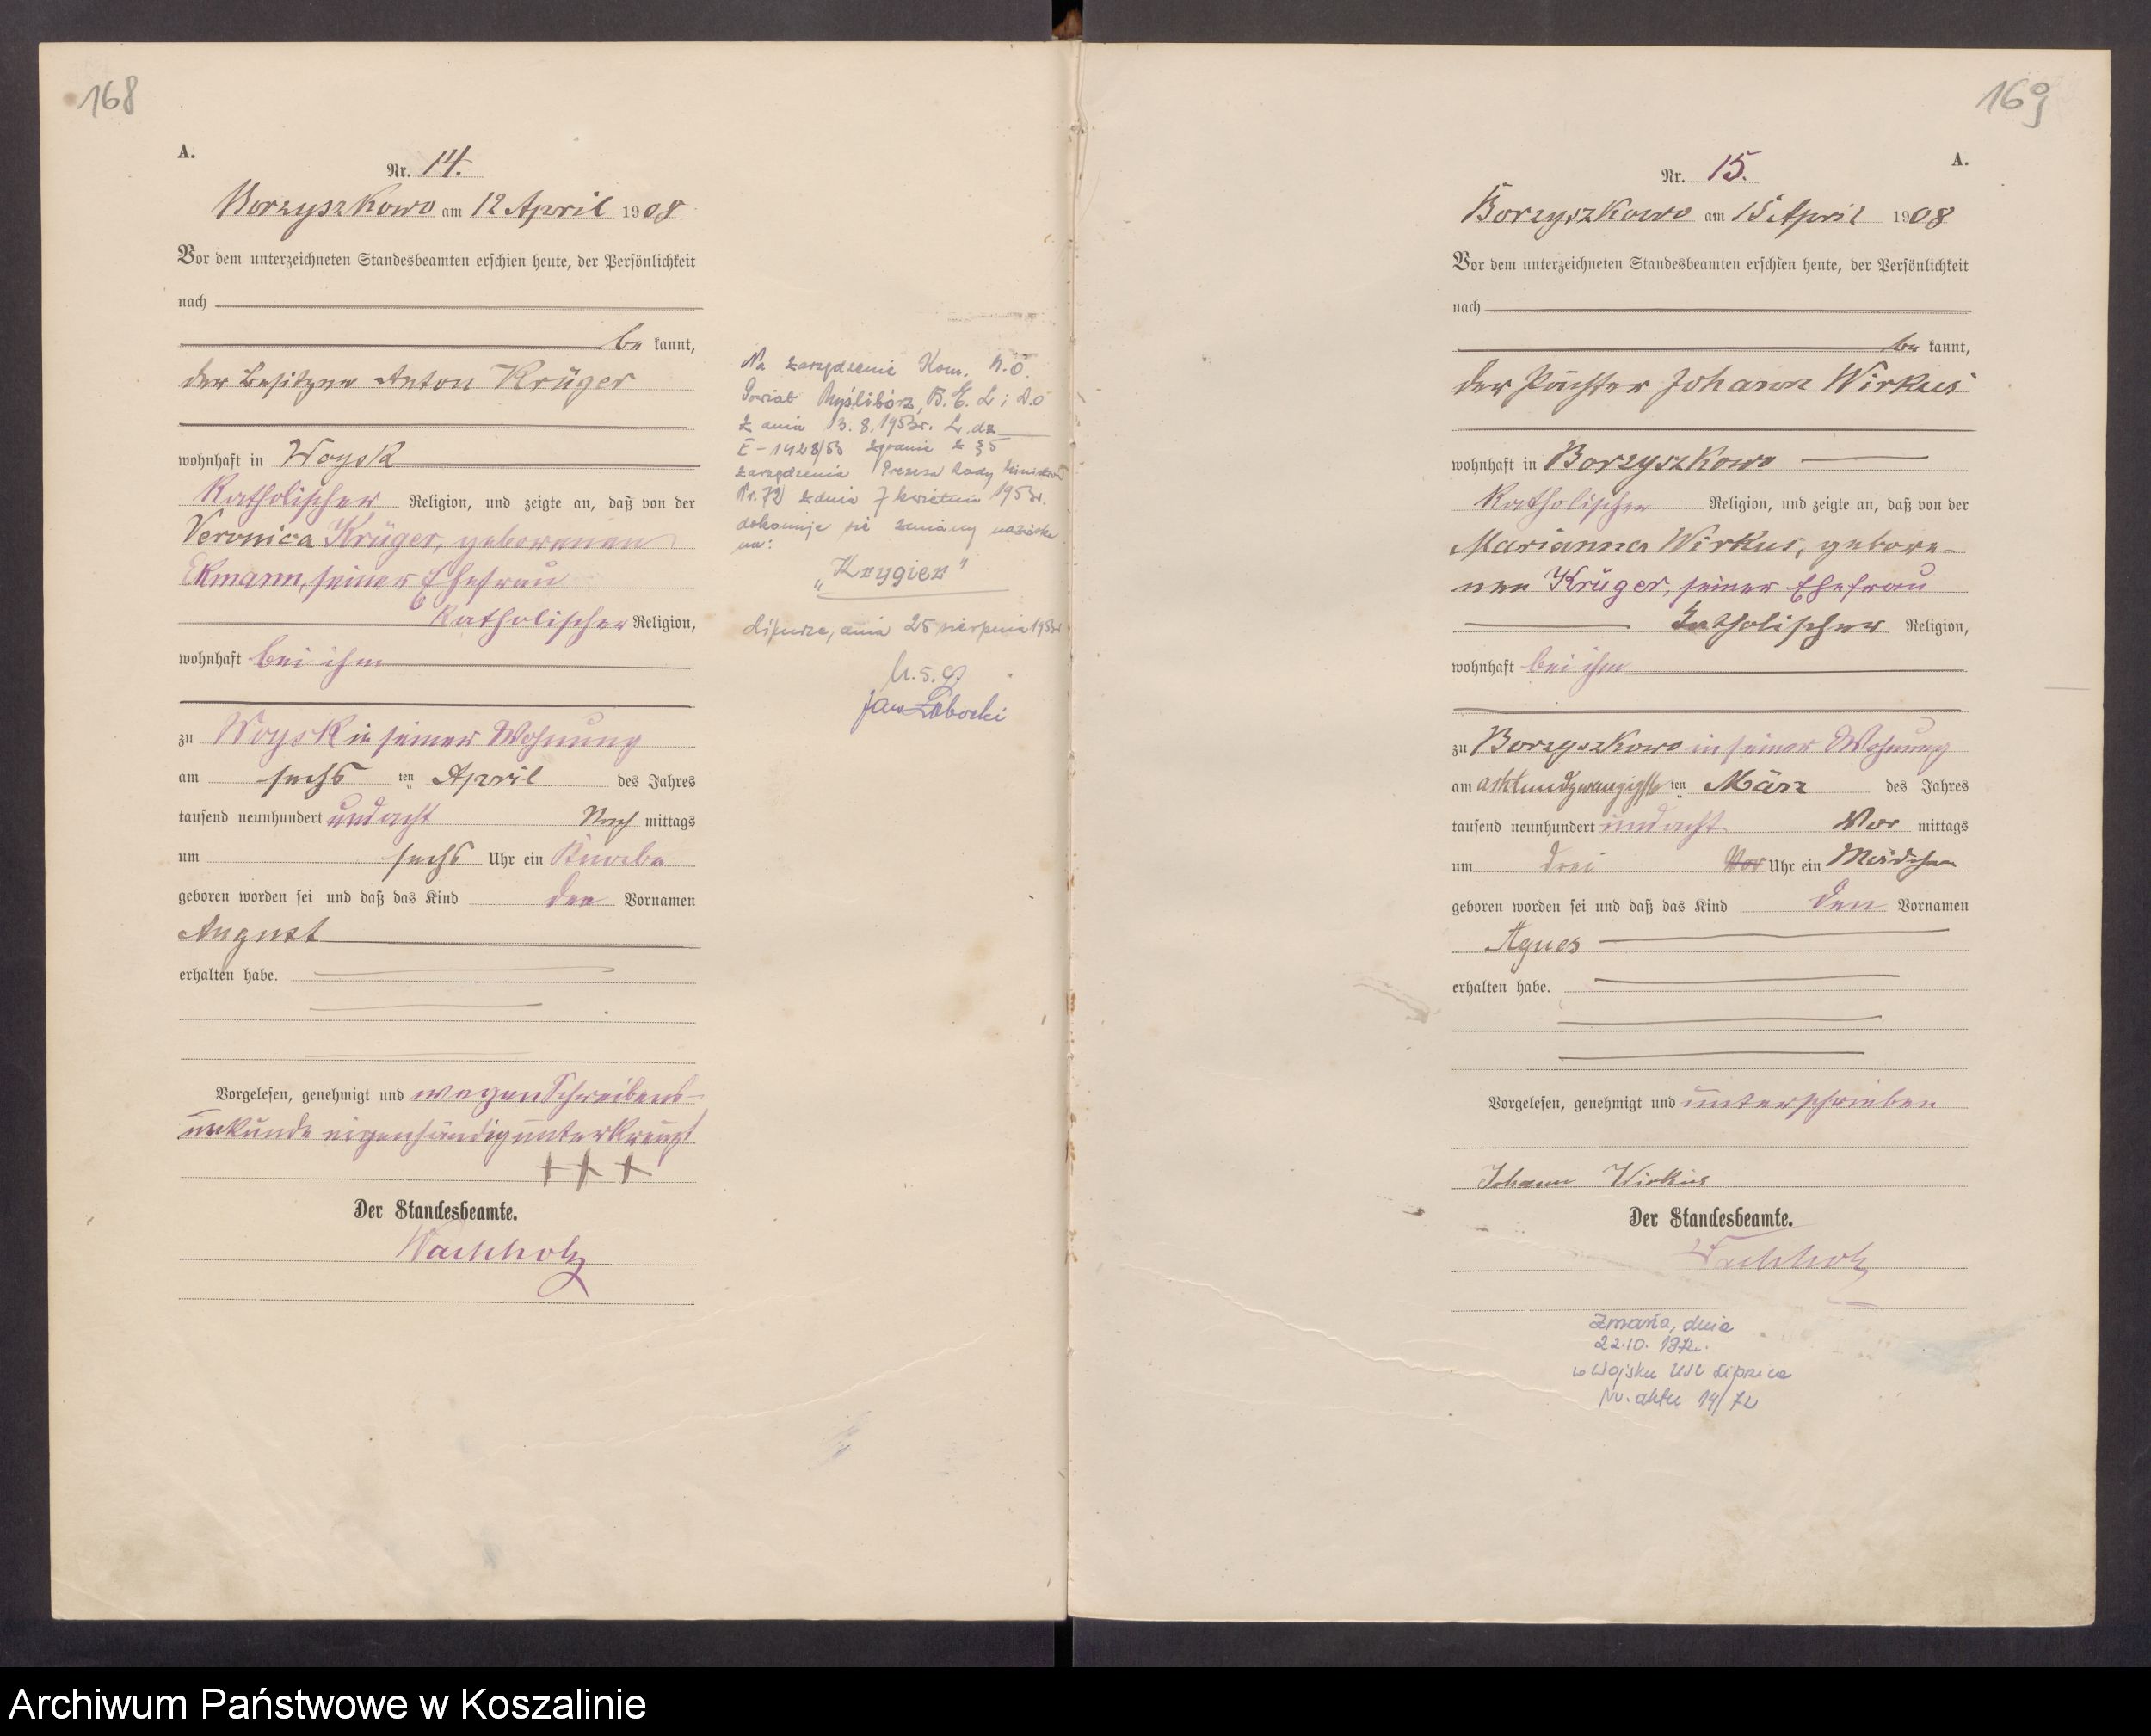 168
A.
Nr. 14.
Borzyszkowo am 12 April 1908.
Vor dem unterzeichneten Standesbeamten erschien heute, der Persönlichkeit
nach
be kannt,
der Besitzer Anton Krüger
wohnhaft in Woysk
Katholischer Religion, und zeigte an, daß von der
Veronica Krüger, geborenen
Ekmann, seiner Ehefrau
Katholischer Religion,
wohnhaft bei ihm
zu Woysk in seiner Wohnung
am sechs ten April des Jahres
tausend neunhundert und acht Nach mittags
um sechs Uhr ein Knabe
geboren worden sei und daß das Kind den Vornamen
August
erhalten habe.
Vorgelesen, genehmigt und wegen Schreibens-
unkunde eigenhändig unterkreuzt
+++
Der Standesbeamte.
Wachholz
Na zarządzenie Kom. N.O.
Powiat Myślibórz, B.E.L i D.O
z dnia 13.8.1953r. L.dz
E-1428/53 zgodnie z § 5
zarządzenia Prezesa Rady Ministrów
Nr. 72 z dnia 7 kwietnia 1953r.
dokonuje się zamiany nazwiska
na:
"Krygier"
Lipnica, dnia 25 sierpnia 1953r
U.S.C.
Jan
169
A.
Nr. 15.
Borzyszkowo am 15 April 1908
Vor dem unterzeichneten Standesbeamten erschien heute, der Persönlichkeit
nach
be kannt,
der Pächter Johann Wirkus
wohnhaft in Borzyszkowo
Katholischer Religion, und zeigte an, daß von der
Marianna Wirkus, gebore-
nen Krüger, seiner Ehefrau
Katholischer Religion,
wohnhaft bei ihm
zu Borzyszkowo in seiner Wohnung
am achtundzwanzigsten ten März des Jahres
tausend neunhundert und acht Vor mittags
um drei Vor Uhr ein Mädchen
geboren worden sei und daß das Kind den Vornamen
Agnes
erhalten habe.
Vorgelesen, genehmigt und unterschrieben
Johann Wirkus
Der Standesbeamte.
Wachholz
Zmarła, dnia
22.10. 1972r.
w Wojsku USC Lipnica
Nr. aktu 14/72
Archiwum Państwowe w Koszalinie